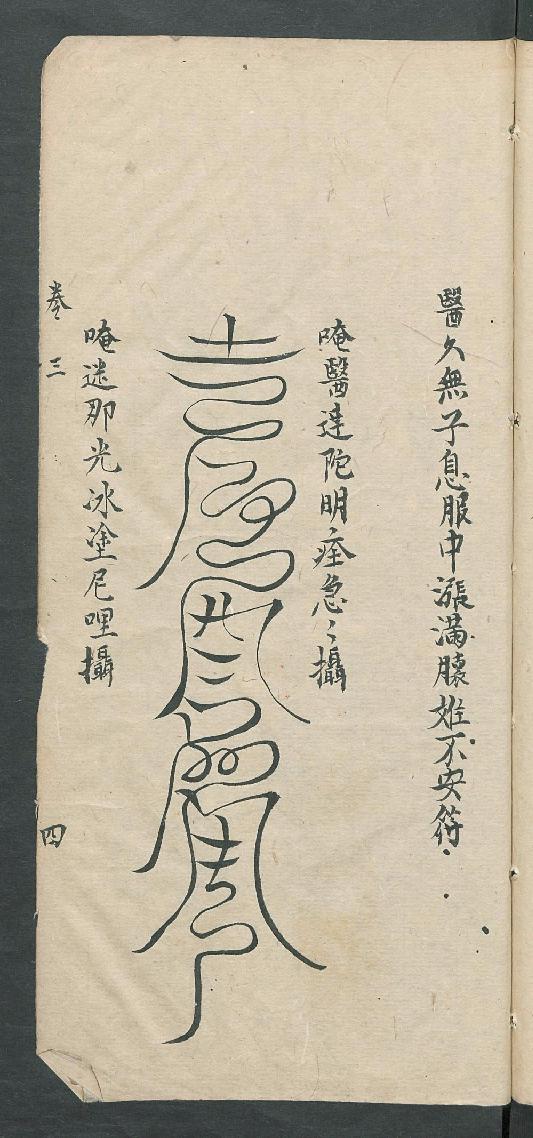 醫久無子息服中漲滿膿姙不安符
唵醫達陀明痊急〻攝
唵迷那光冰塗尼哩攝
卷三 四